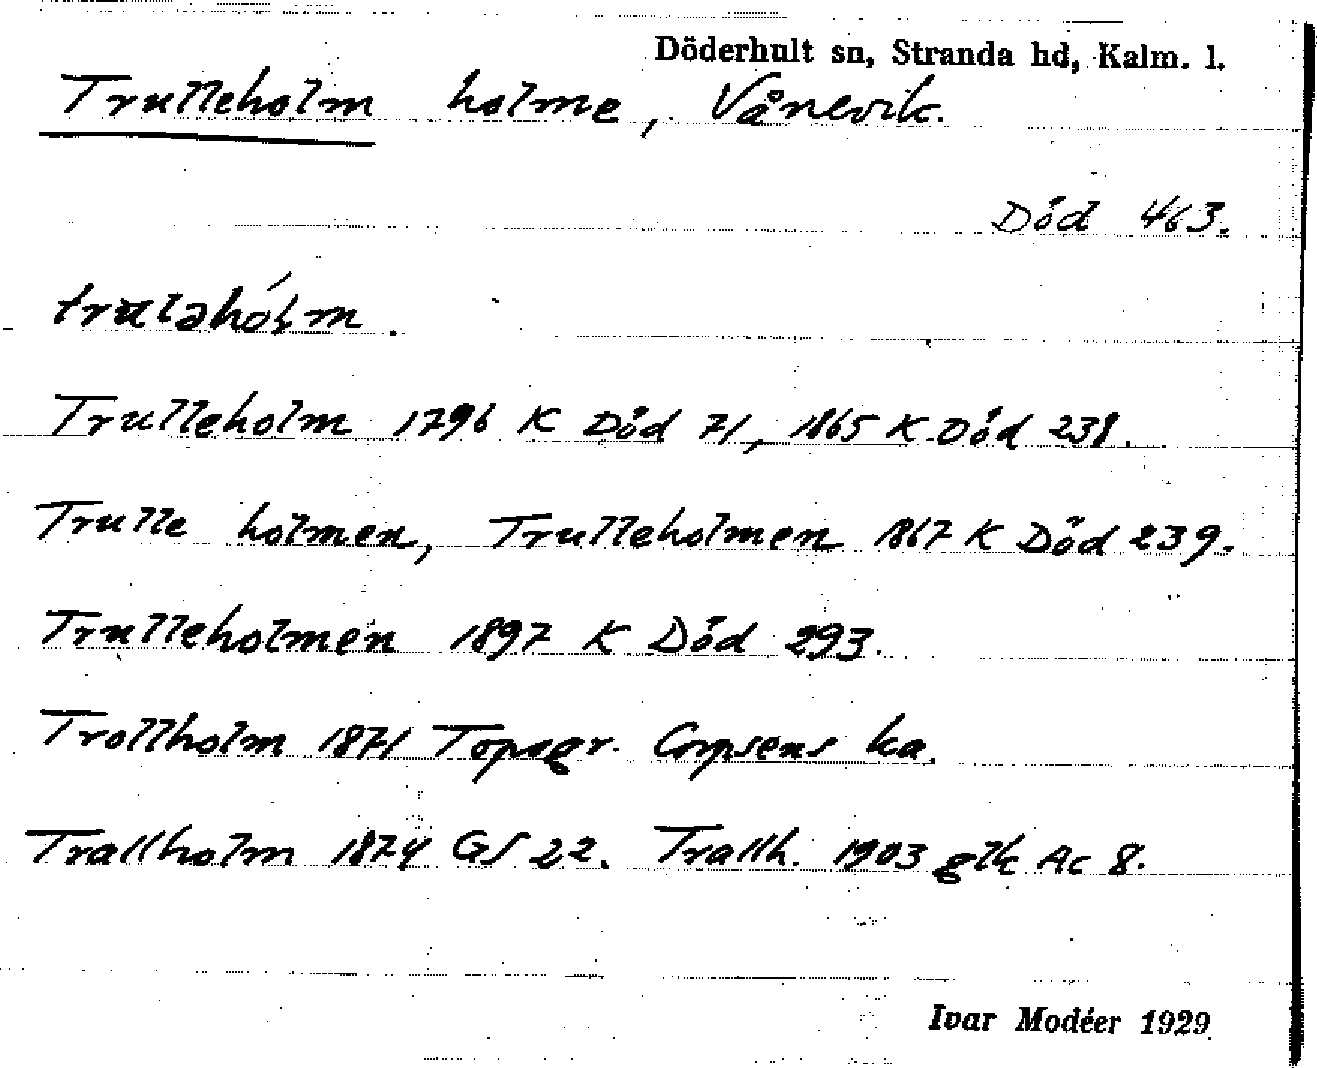 Döderhult sn, Stranda hd, Kalm. l.
Trulleholm holme, Vånevik.
Död 463.
truləhólm.
Trulleholm 1796 K Död 71, 1865 K Död 238.
Trulle holmen, Trulleholmen 1867 K Död 239.
Trulleholmen 1897 K Död 293.
Trollholm 1871 Topogr. Corpsens ka.
Trallholm 1874 GS 22. Trallh. 1903 glk Ac 8.
Ivar Modéer 1929